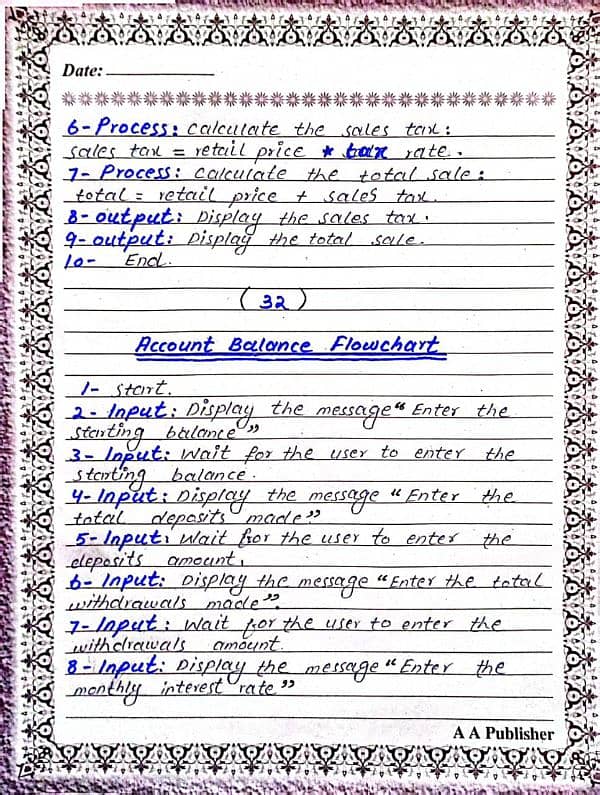 Date:
6- Process: calculate the sales tax:
sales tax = retail price * tax rate.
7- Process: calculate the total sale:
total = retail price + sales tax.
8- output: Display the sales tax.
9- output: Display the total sale.
10- End.
(32)
Account Balance Flowchart
1- start.
2- Input: Display the message "Enter the
starting balance"
3- Input: Wait for the user to enter the
starting balance.
4- Input: Display the message "Enter the
total deposits made"
5- Input: Wait for the user to enter the
deposits amount.
6- Input: Display the message "Enter the total
withdrawals made".
7- Input: Wait for the user to enter the
withdrawals amount.
8- Input: Display the message "Enter the
monthly interest rate"
A A Publisher